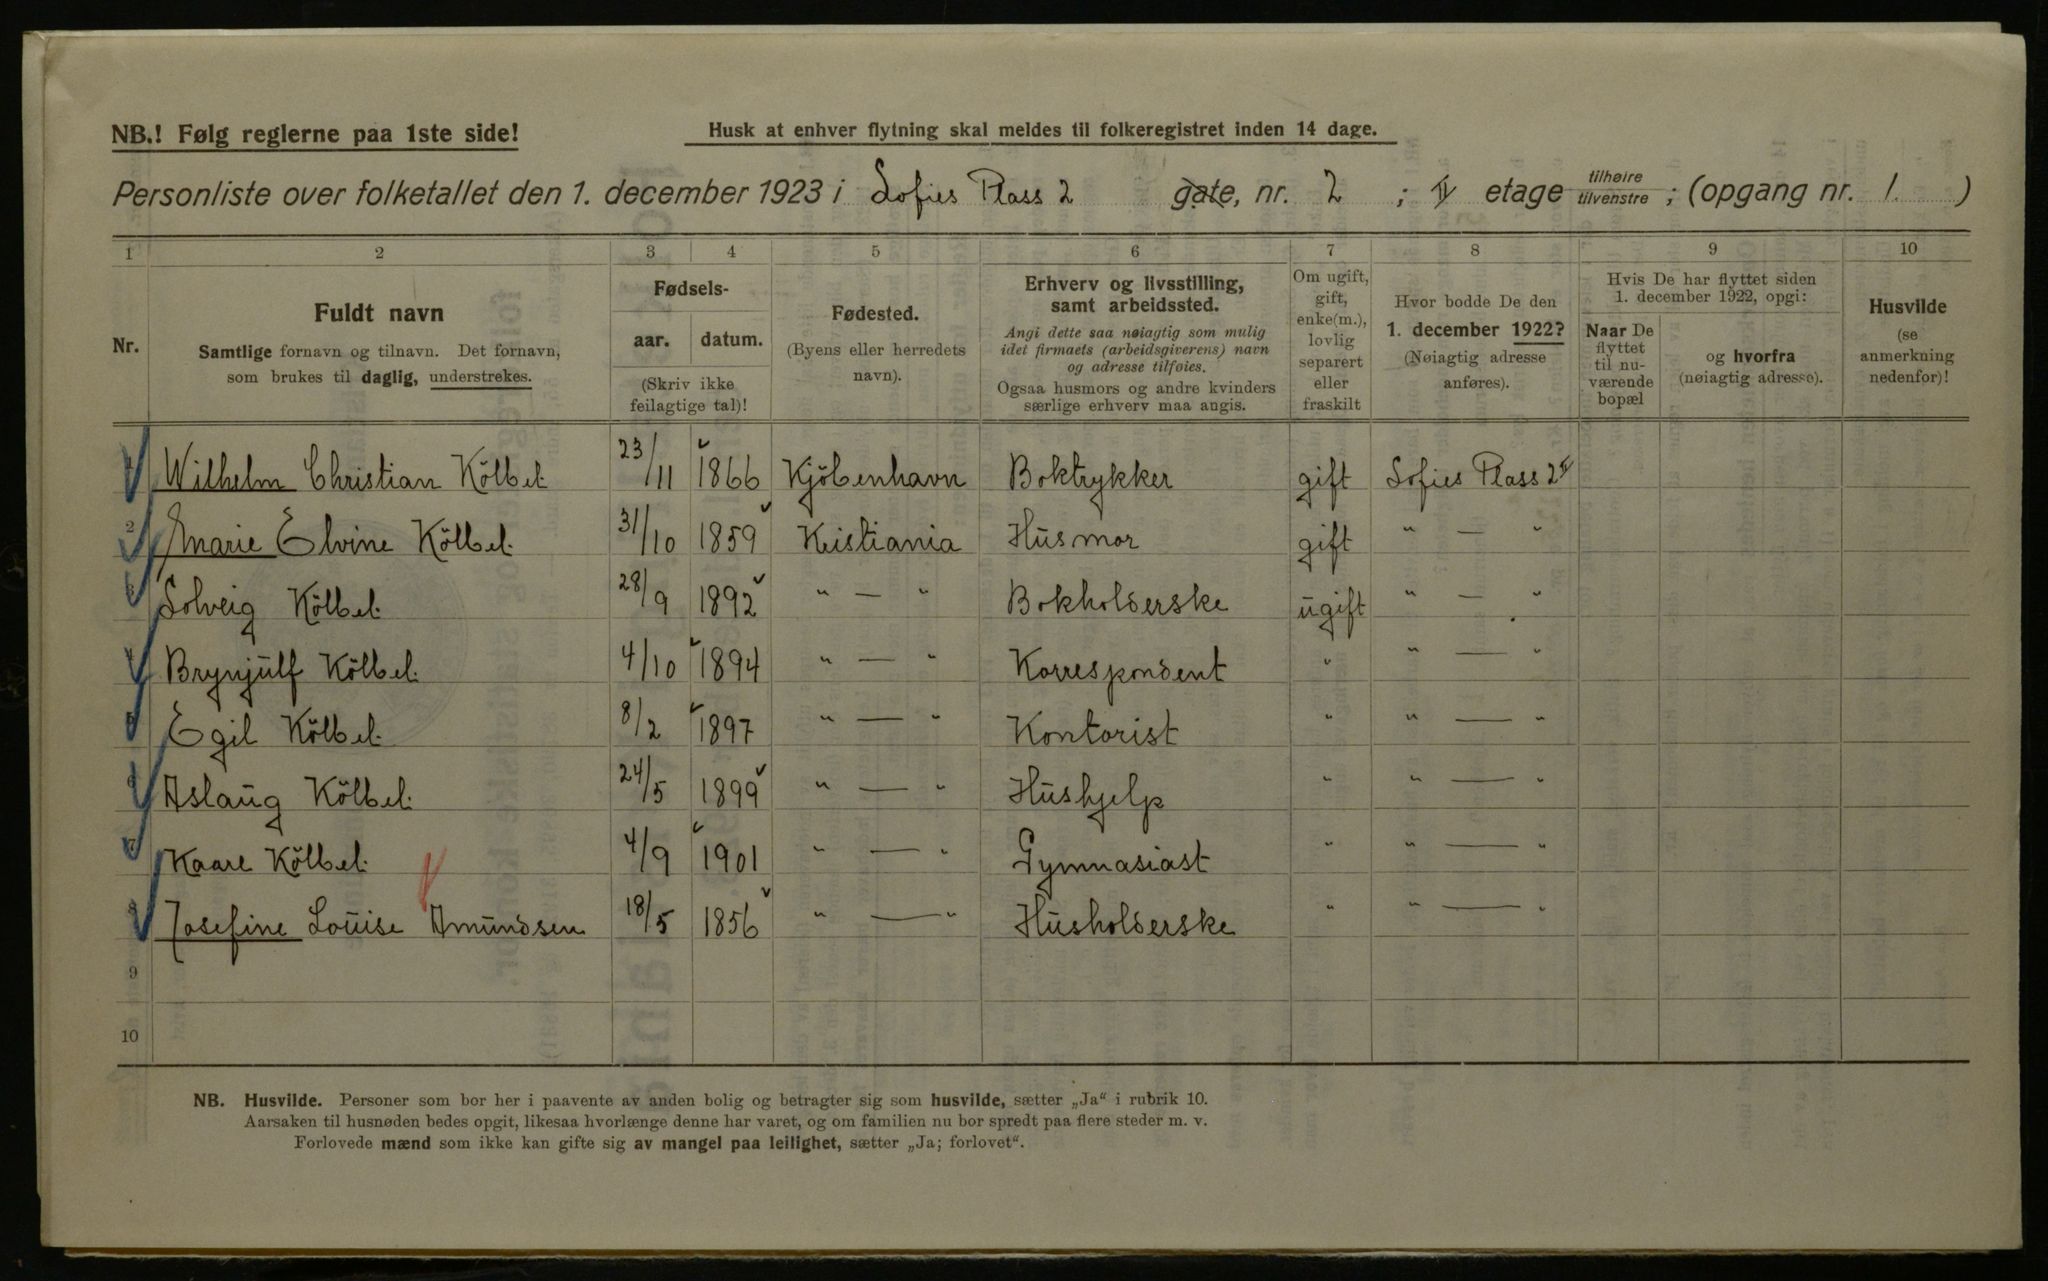 NB.! Følg reglerne paa 1ste side!
Husk at enhver flytning skal meldes til folkeregistret inden 14 dage.
Personliste over folketallet den 1. december 1923 i Sofies Plass 2 gate, nr. 2 ; II etage tilhøire tilvenstre ; (opgang nr. 1. )
1 2 3 4 5 6 7 8 9 10
Nr.
Fuldt navn
Samtlige fornavn og tilnavn. Det fornavn,
som brukes til daglig, understrekes.
Fødsels-
aar. datum.
(Skriv ikke
feilagtige tal)!
Fødested.
(Byens eller herredets
navn).
Erhverv og livsstilling,
samt arbeidssted.
Angi dette saa nøiagtig som mulig
idet firmaets (arbeidsgiverens) navn
og adresse tilføies.
Ogsaa husmors og andre kvinders
særlige erhverv maa angis.
Om ugift,
gift,
enke(m.),
lovlig
separert
eller
fraskilt
Hvor bodde De den
1. december 1922?
(Nøiagtig adresse
anføres).
Hvis De har flyttet siden
1. december 1922, opgi:
Naar De
flyttet
til nu-
værende
bopæl
og hvorfra
(nøiagtig adresse).
Husvilde
(se
anmerkning
nedenfor)!
1 Wilhelm Christian Kölbel. 23/11 1866 Kjöbenhavn Boktrykker gift Sofies Plass 2 II
2 Marie Elvine Kölbel. 31/10 1859 Kristiania Husmor gift " — "
3 Solveig Kölbel. 28/9 1892 " — " Bokholderske ugift " — "
4 Brynjulf Kölbel. 4/10 1894 " — " Korrespondent " " — "
5 Egil Kölbel. 8/2 1897 " — " Kontorist " " — "
6 Aslaug Kölbel. 24/5 1899 " — " Hushjelp " " — "
7 Kaare Kölbel. 4/9 1901 " — " Gymnasiast " " — "
8 Josefine Louise Amundsen 18/5 1856 " — " Husholderske " " — "
9
10
NB. Husvilde. Personer som bor her i paavente av anden bolig og betragter sig som husvilde, sætter „Ja“ i rubrik 10.
Aarsaken til husnøden bedes opgit, likesaa hvorlænge denne har varet, og om familien nu bor spredt paa flere steder m. v.
Forlovede mænd som ikke kan gifte sig av mangel paa leilighet, sætter „Ja; forlovet“.